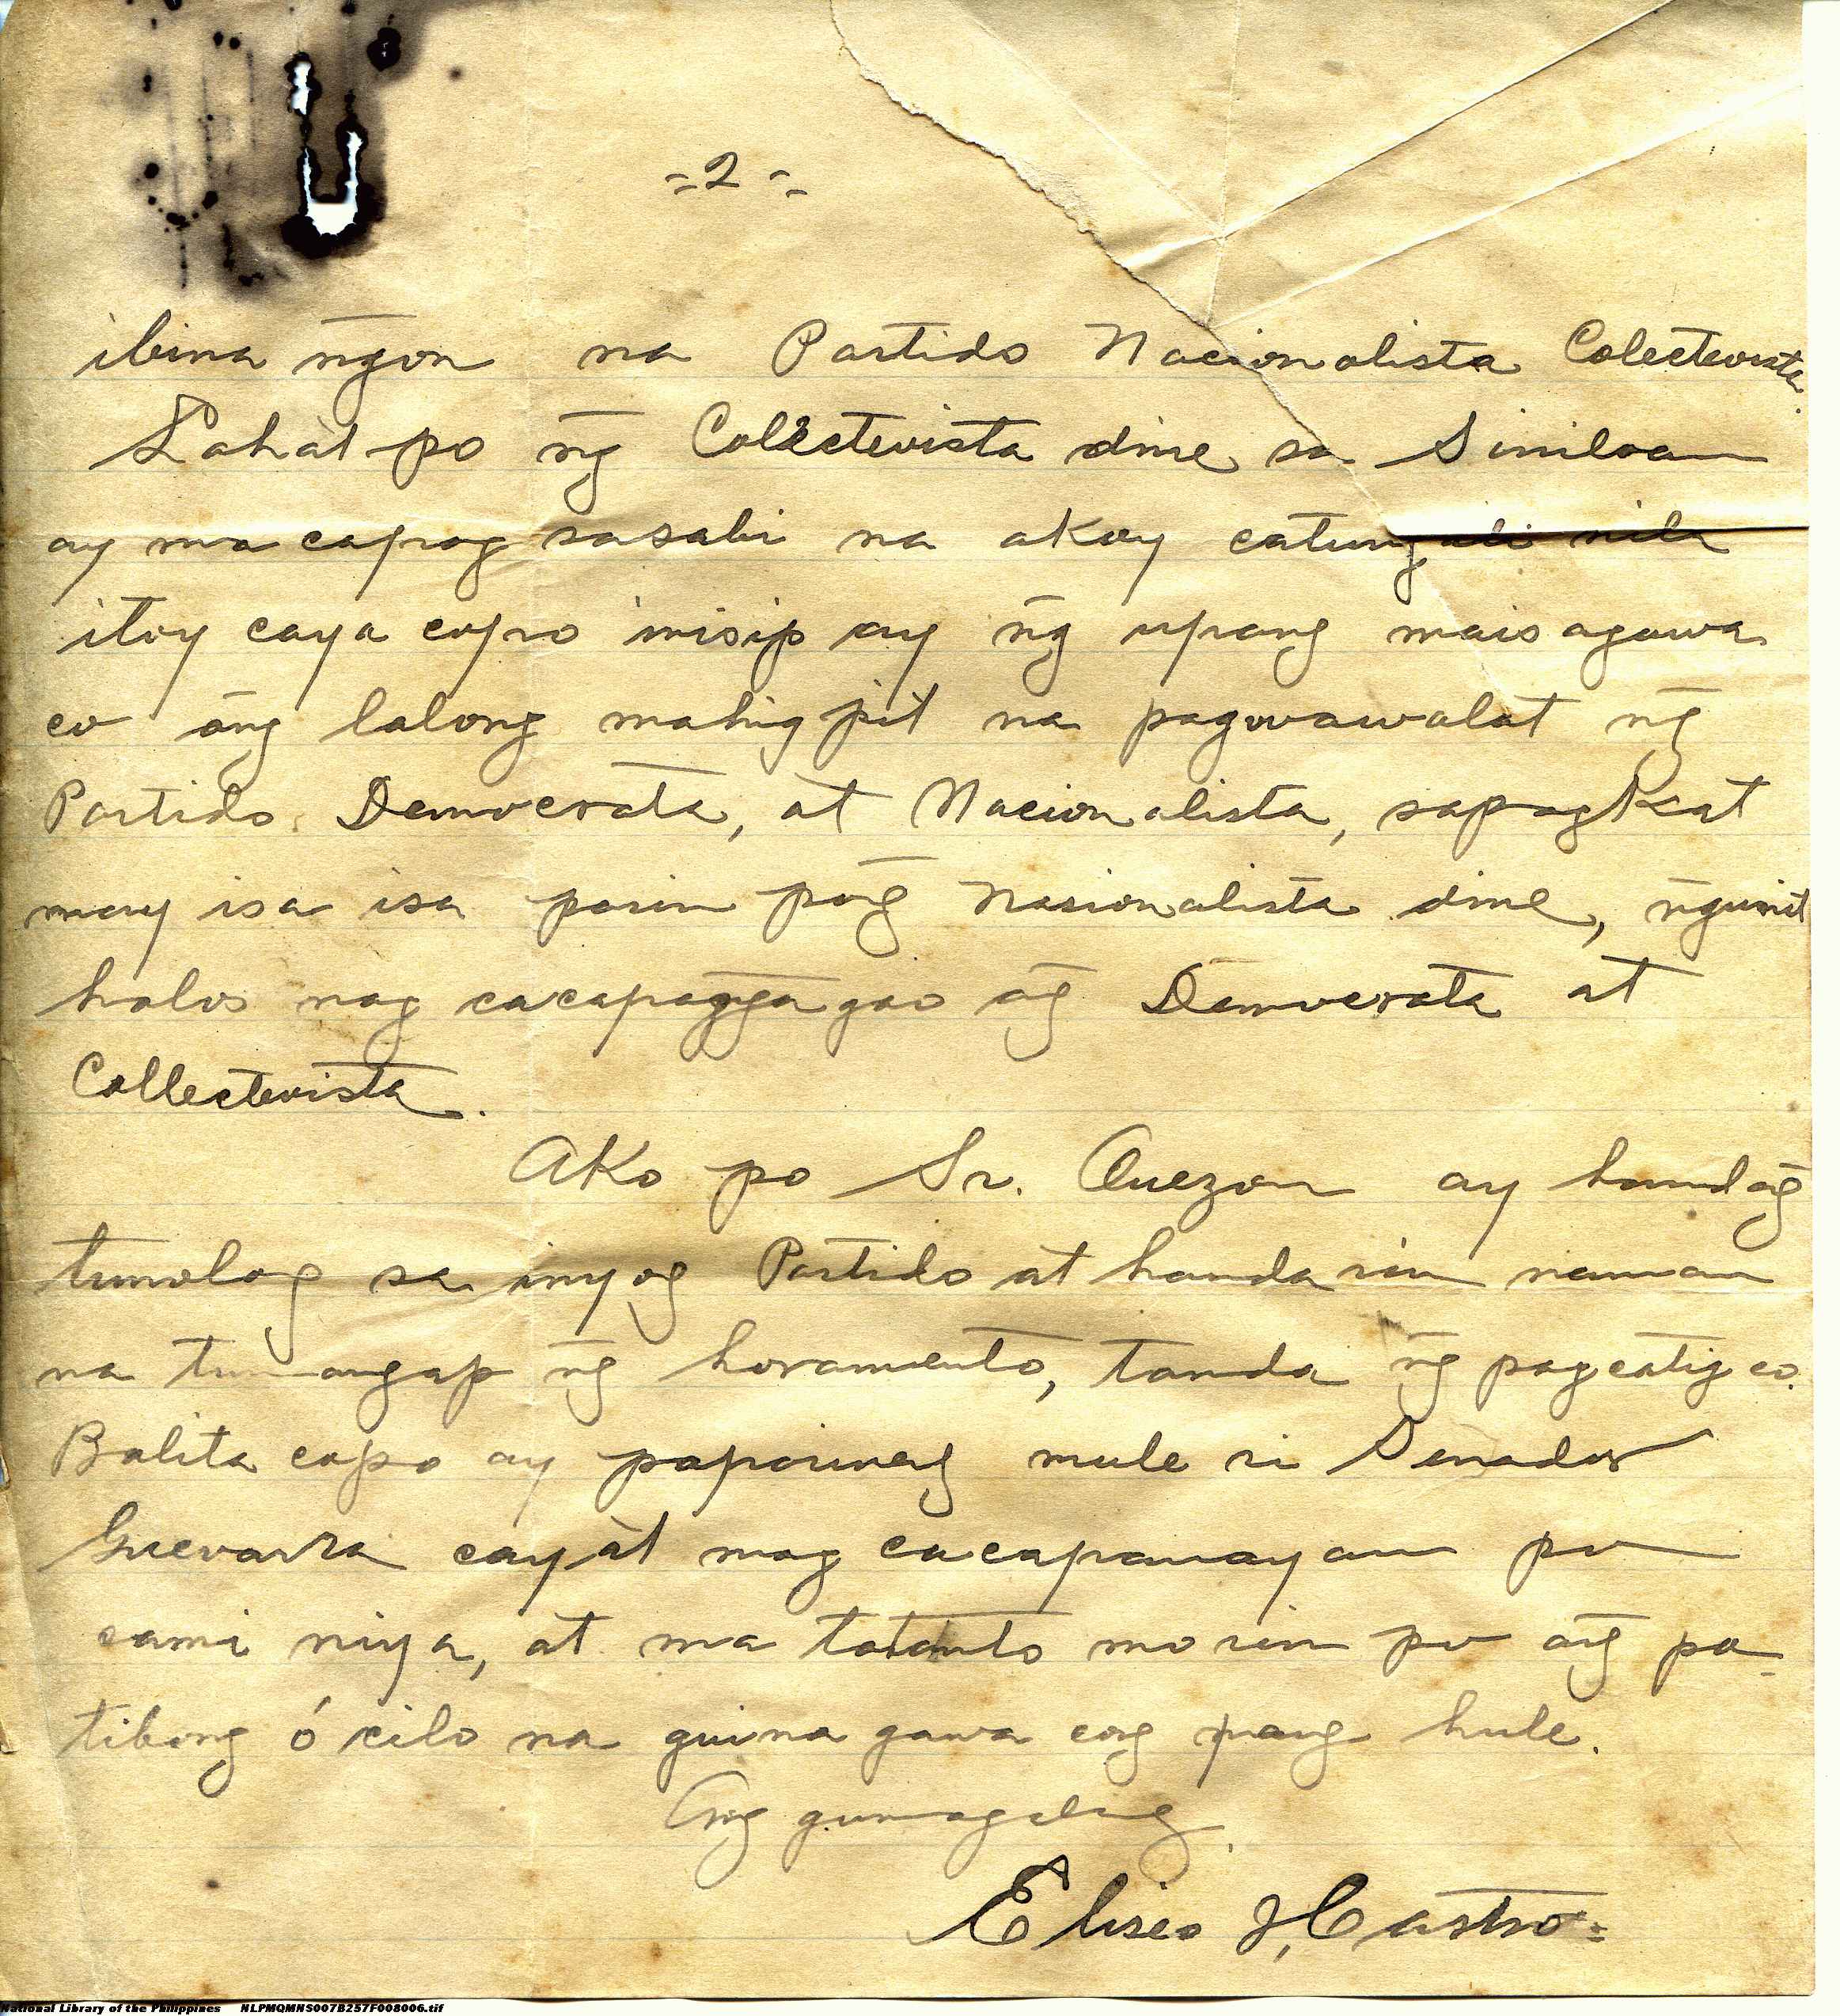 =2=
ibina n̄gon na Partido Nacionalista Colectevista.
Lahat po n̄g Colectevista dine sa Siniloan
ay ma capag sasabi na akoy catungali nila
itoy caya copo inisip ay n̄g upang maisagawa
co an̄g lalong mahigpit na pagwawalat n̄g
Partido Democrata, at Nacionalista, sapagkat
may isa isa parin pan̄g Nasionalista dine, n̄gunit
halos nag cacapagga gao an̄g Democrata at
Collectevista.
Ako po Sr. Quezon ay handan̄g
tumolog sa inyog Partido at handa rin naman
na tumangap n̄g horamento, tanda n̄g pagcatig co.
Balita copo ay paparineg mule si Senador
Guevarra cayat mag cacapanayam po
cami niya, at ma tatanto mo rin po an̄g pa-
tibong ó silo na guina gawa cong pang hule.
Ang gumagalang
Eliseo J. Castro=
National Library of the Philippines NLPMQMNS007B257F008006.tif